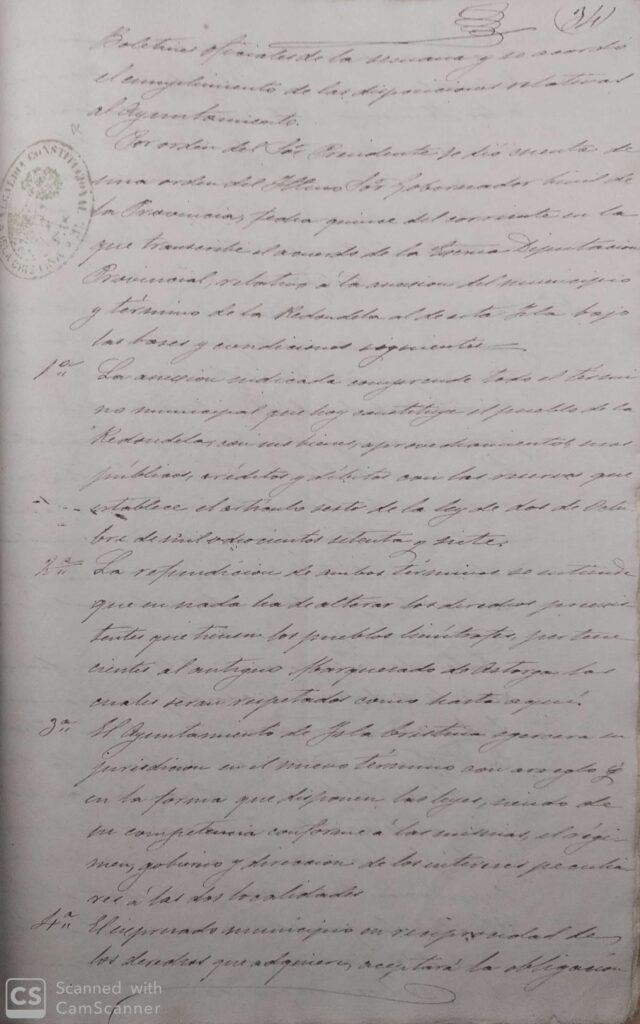 34
Boletines oficiales de la semana y se acordó
el cumplimiento de las disposiciones relativas
al Ayuntamiento.
Por orden del Sor Presidente se dió cuenta de
una orden del Sor Gobernador Civil de
la Provincia, fecha quince del corriente en la
que transcribe el acuerdo de la Diputacion
Provincial, relativo á la anexion del municipio
y término de la Redondela al de esta Isla bajo
las bases y condiciones siguientes
1ª La anexion indicada comprende todo el térmi
no municipal que hoy constituye el pueblo de la
Redondela, con sus bienes, aprovechamientos, usos
públicos, créditos y débitos con las reservas que
establece el articulo sesto de la ley de dos de Octu
bre de mil ochocientos setenta y siete.
2ª La refundicion de ambos términos se entiende
que en nada ha de alterar los derechos preecsis
tentes que tienen los pueblos limítrofes, pertene
cientes al antiguo Marquesado de Astorga, los
cuales seran respetados como hasta aquí.
3ª El Ayuntamiento de Isla Cristina ejercera su
jurisdicion en el nuevo término con arreglo y
en la forma que disponen las leyes, siendo de
su competencia conforme á las mismas, el régi
men, gobierno y direccion de los intereses peculia
res á las dos localidades
4ª El espresado municipio en reciprocidad de
los derechos que adquiere, aceptará la obligacion
ALCALDIA CONSTITUCIONAL
CS Scanned with
CamScanner